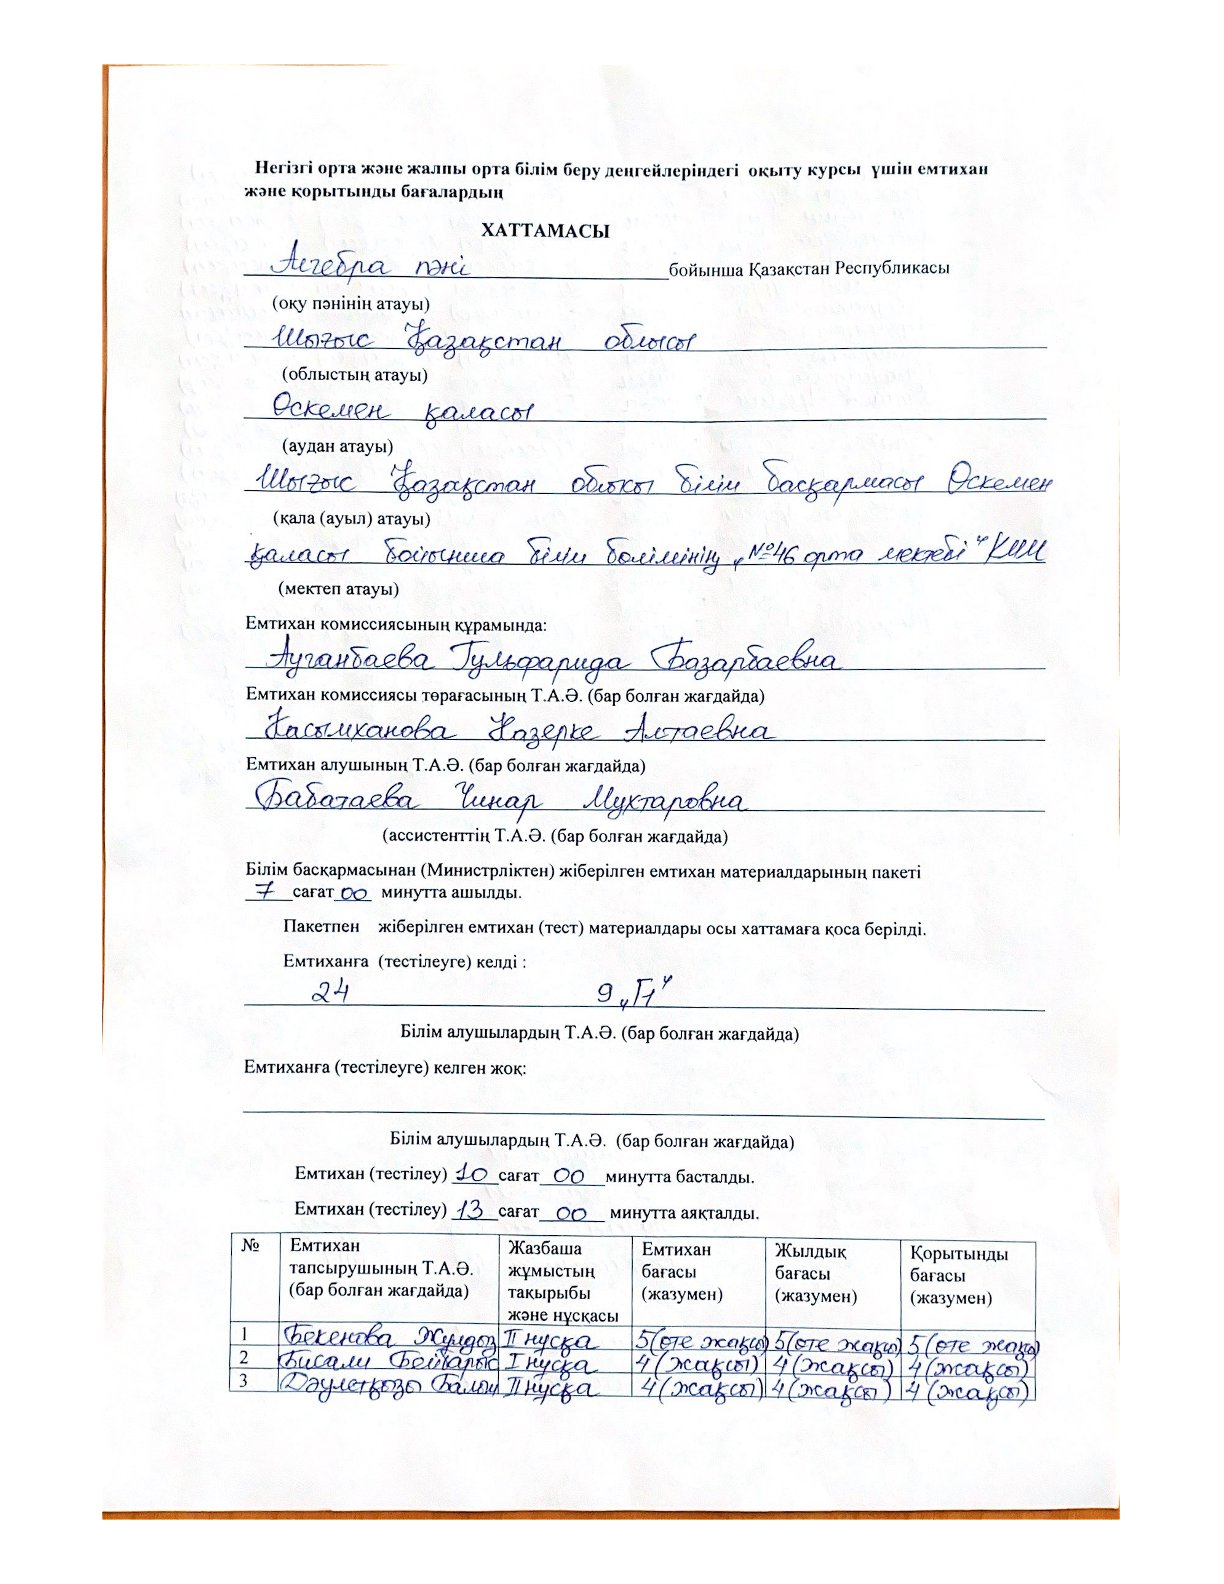 Негізгі орта және жалпы орта білім беру деңгейлеріндегі оқыту курсы үшін емтихан
және қорытынды бағалардың
ХАТТАМАСЫ
Алгебра пәні бойынша Қазақстан Республикасы
(оқу пәнінің атауы)
Шығыс Қазақстан облысы
(облыстың атауы)
Өскемен қаласы
(аудан атауы)
Шығыс Қазақстан облысы білім басқармасы Өскемен
(қала (ауыл) атауы)
қаласы бойынша білім бөлімінің „№46 орта мектебі" КММ
(мектеп атауы)
Емтихан комиссиясының құрамында:
Ауганбаева Гульфарида Базарбаевна
Емтихан комиссиясы төрағасының Т.А.Ә. (бар болған жағдайда)
Касымханова Назерке Алтаевна
Емтихан алушының Т.А.Ә. (бар болған жағдайда)
Бабатаева Чинар Мухтаровна
(ассистенттің Т.А.Ә. (бар болған жағдайда)
Білім басқармасынан (Министрліктен) жіберілген емтихан материалдарының пакеті
7 сағат 00 минутта ашылды.
Пакетпен жіберілген емтихан (тест) материалдары осы хаттамаға қоса берілді.
Емтиханға (тестілеуге) келді :
24 9 „Г"
Білім алушылардың Т.А.Ә. (бар болған жағдайда)
Емтиханға (тестілеуге) келген жоқ:
Білім алушылардың Т.А.Ә. (бар болған жағдайда)
Емтихан (тестілеу) 10 сағат 00 минутта басталды.
Емтихан (тестілеу) 13 сағат 00 минутта аяқталды.
№ Емтихан тапсырушының Т.А.Ә. (бар болған жағдайда) Жазбаша жұмыстың тақырыбы және нұсқасы Емтихан бағасы (жазумен) Жылдық бағасы (жазумен) Қорытынды бағасы (жазумен)
1 Бекенова Жулдыз II нұсқа 5 (өте жақсы) 5 (өте жақсы) 5 (өте жақсы)
2 Бисали Бейбарыс I нұсқа 4 (жақсы) 4 (жақсы) 4 (жақсы)
3 Дәулетқызы II нұсқа 4 (жақсы) 4 (жақсы) 4 (жақсы)